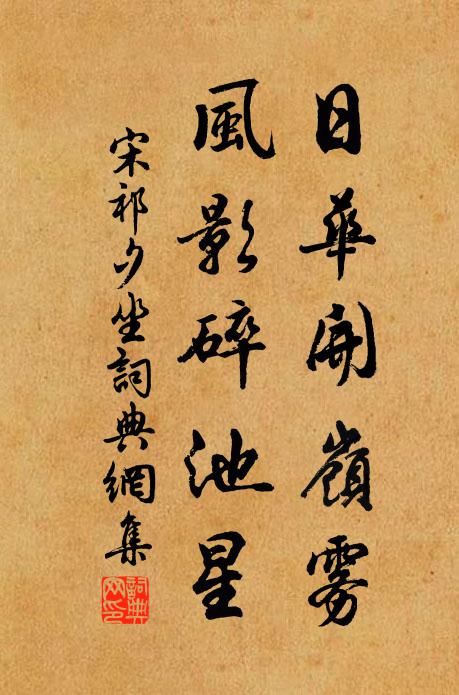 日華開嶺霧
風影碎池星
宋祁夕坐詞典網集
詞典
网印